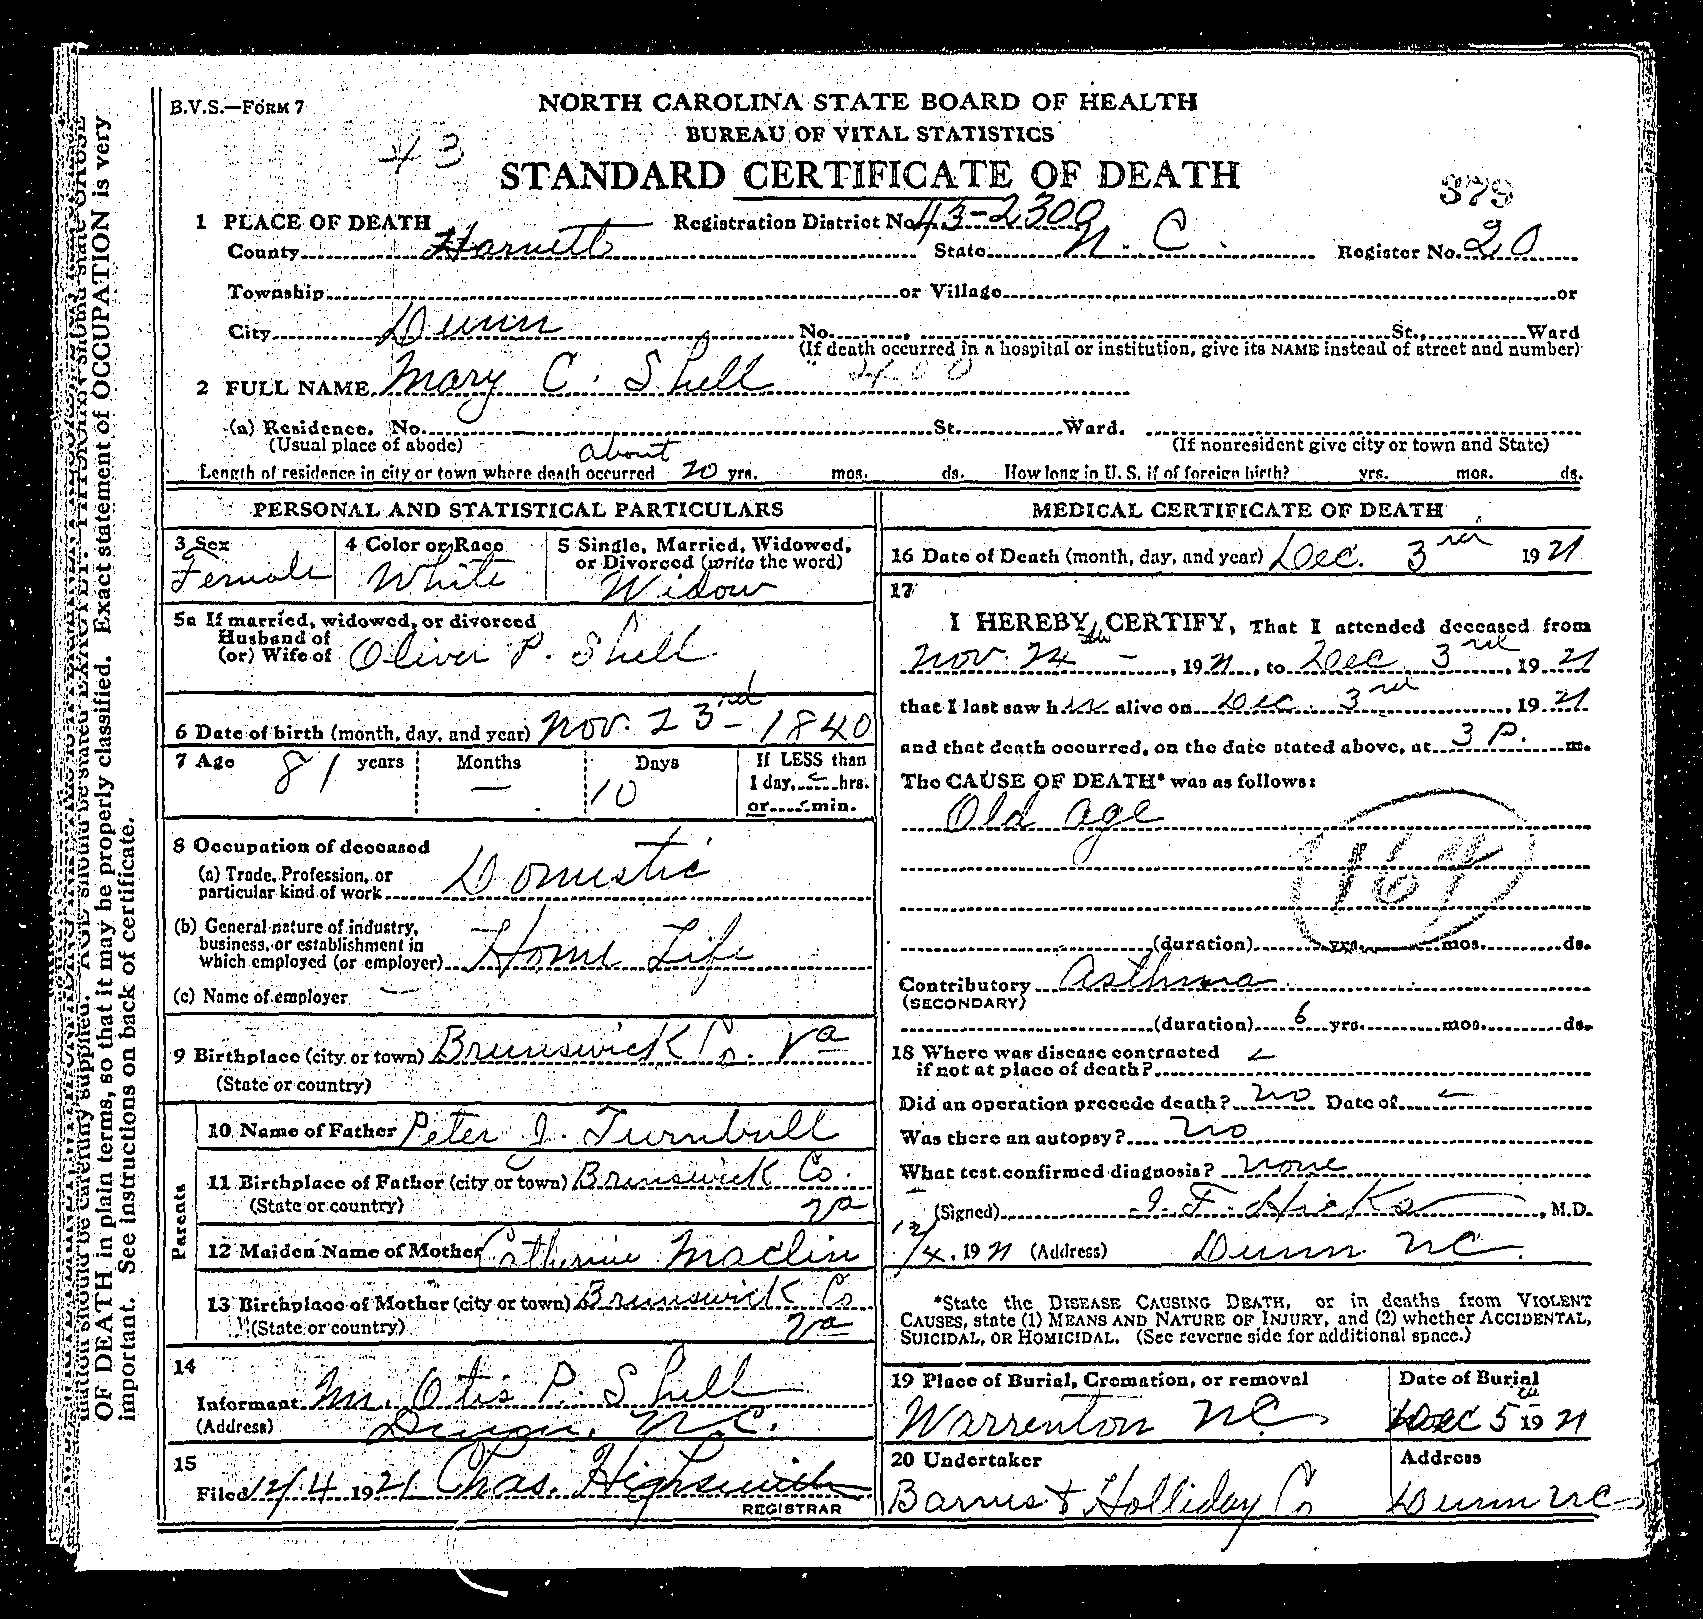 B.V.S.—FORM 7
NORTH CAROLINA STATE BOARD OF HEALTH
BUREAU OF VITAL STATISTICS
43
STANDARD CERTIFICATE OF DEATH
379
1 PLACE OF DEATH Registration District No. 43-2300
County Harnett State N. C. Register No. 20
Township or Village or
City Dunn No. , St., Ward
(If death occurred in a hospital or institution, give its NAME instead of street and number)
2 FULL NAME Mary C. Shell
(a) Residence. No. St. Ward.
(Usual place of abode) (If nonresident give city or town and State)
about
Length of residence in city or town where death occurred 20 yrs. mos. ds. How long in U. S. if of foreign birth? yrs. mos. ds.
PERSONAL AND STATISTICAL PARTICULARS
3 Sex 4 Color or Race 5 Single, Married, Widowed, or Divorced (write the word)
Female White Widow
5a If married, widowed, or divorced
Husband of
(or) Wife of Oliver P. Shell
6 Date of birth (month, day, and year) Nov. 23rd - 1840
7 Age 81 years Months — Days 10 If LESS than
1 day, hrs.
or min.
8 Occupation of deceased
(a) Trade, Profession, or
particular kind of work Domestic
(b) General nature of industry,
business, or establishment in
which employed (or employer) Home Life
(c) Name of employer —
9 Birthplace (city or town) Brunswick Co. Va
(State or country)
Parents
10 Name of Father Peter J. Turnbull
11 Birthplace of Father (city or town) Brunswick Co.
(State or country) Va
12 Maiden Name of Mother Catherine Maclin
13 Birthplace of Mother (city or town) Brunswick Co
(State or country) Va
14
Informant Mr. Otis P. Shell
(Address) Dunn, N.C.
15
Filed 12/4 1921 Chas. Highsmith
REGISTRAR
MEDICAL CERTIFICATE OF DEATH
16 Date of Death (month, day, and year) Dec. 3rd 1921
17
I HEREBY CERTIFY, That I attended deceased from
Nov. 24th - , 1921, to Dec. 3rd, 1921
that I last saw her alive on Dec. 3rd, 1921
and that death occurred, on the date stated above, at 3 P. m.
The CAUSE OF DEATH* was as follows:
Old age
164
(duration) yrs. mos. ds.
Contributory Asthma
(SECONDARY)
(duration) 6 yrs. mos. ds.
18 Where was disease contracted
if not at place of death?
Did an operation precede death? No Date of
Was there an autopsy? No
What test confirmed diagnosis? none
(Signed) I. F. Hicks, M.D.
12/4, 1921 (Address) Dunn NC.
*State the DISEASE CAUSING DEATH, or in deaths from VIOLENT
CAUSES, state (1) MEANS AND NATURE OF INJURY, and (2) whether ACCIDENTAL,
SUICIDAL, OR HOMICIDAL. (See reverse side for additional space.)
19 Place of Burial, Cremation, or removal Date of Burial
Warrenton NC. Dec 5th 1921
20 Undertaker Address
Barnes & Holliday Co Dunn NC
OF DEATH in plain terms, so that it may be properly classified. Exact statement of OCCUPATION is very
important. See instructions on back of certificate.